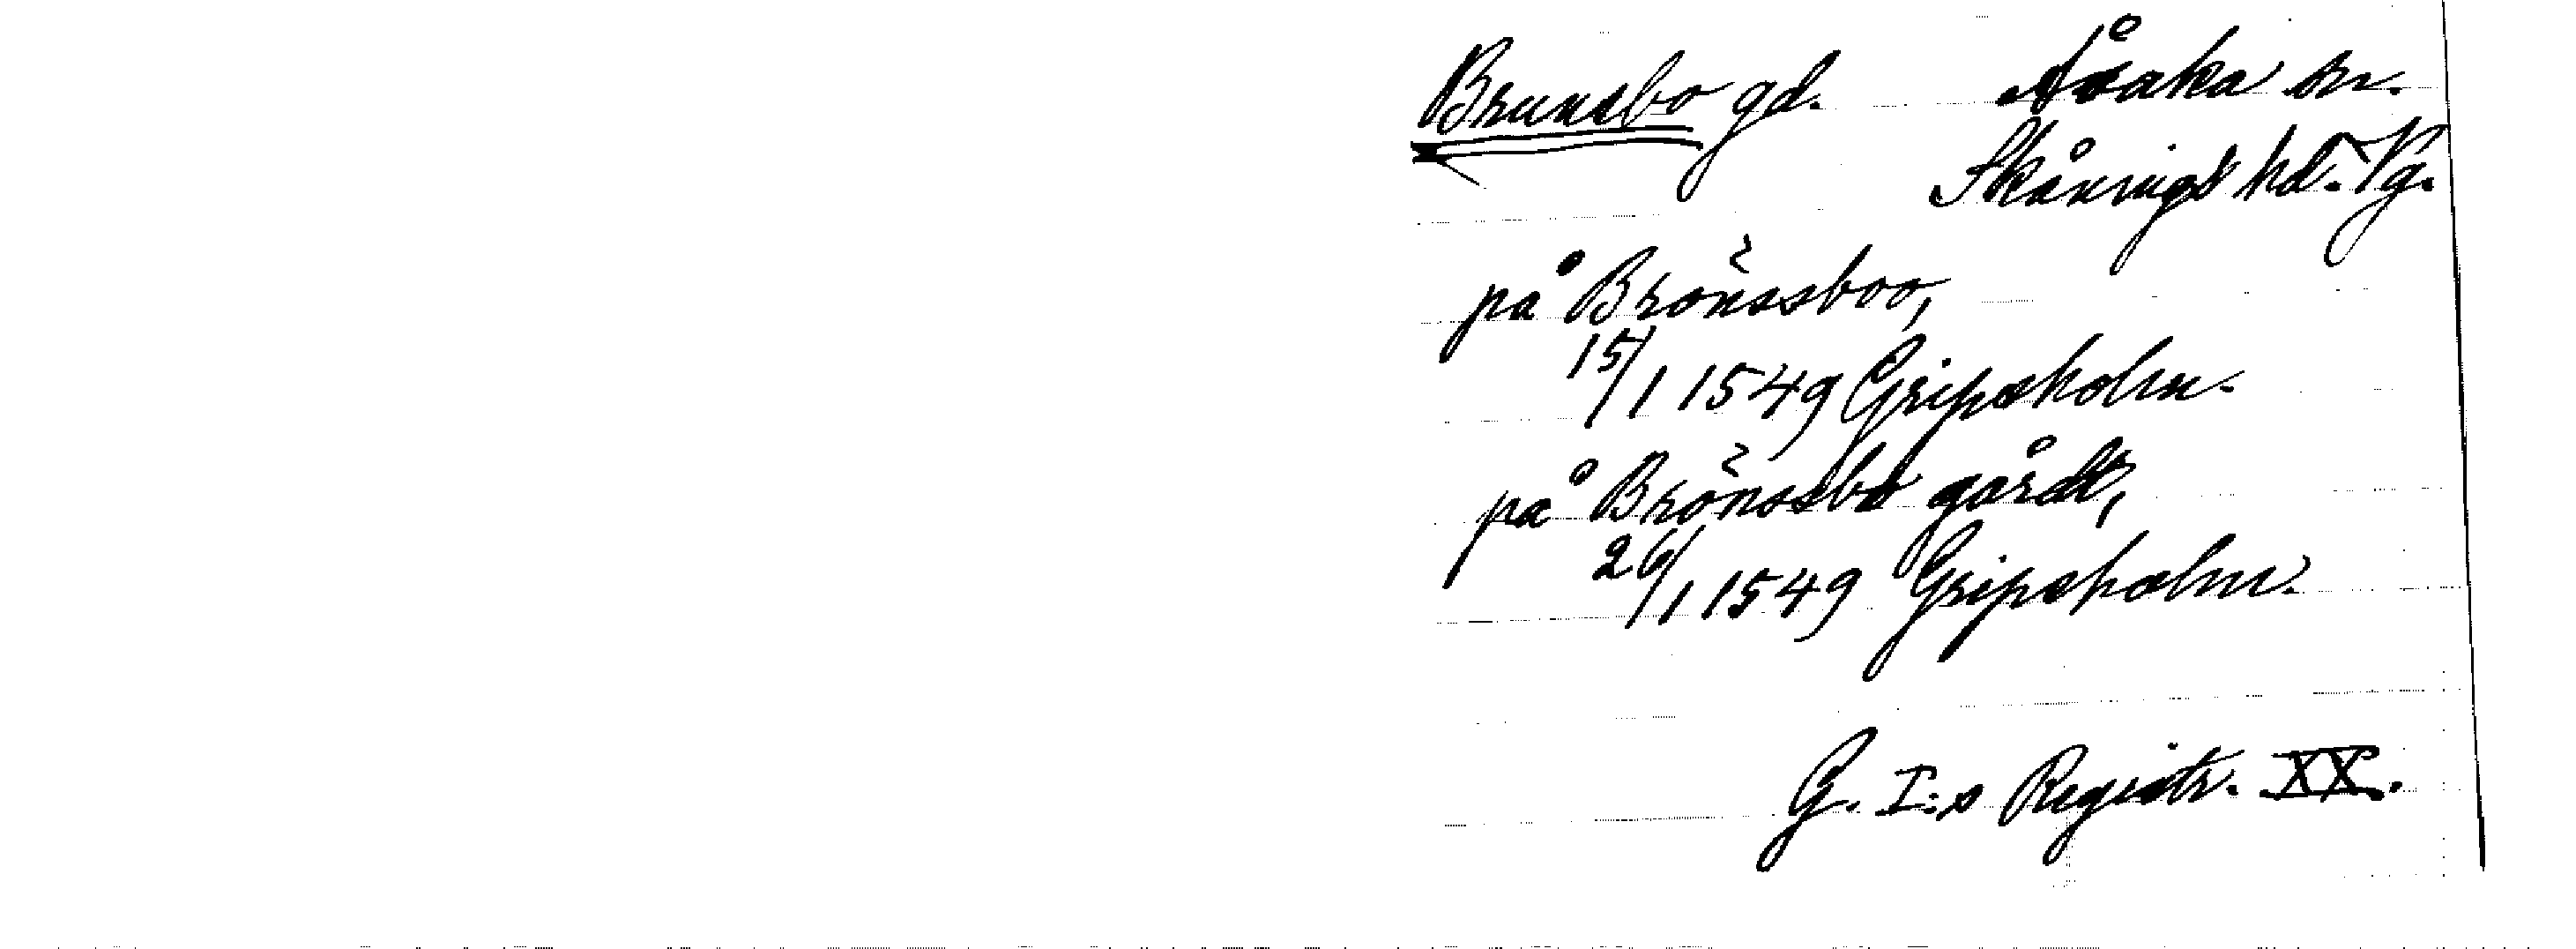 Brunsbo gd. Åsaka sn.
Skånings hd. Vg.
på Brönssboo,
15/1 1549 Gripsholm.
på Brönssbo gårdt,
26/1 1549 Gripsholm.
G. I:s Registr. XX.